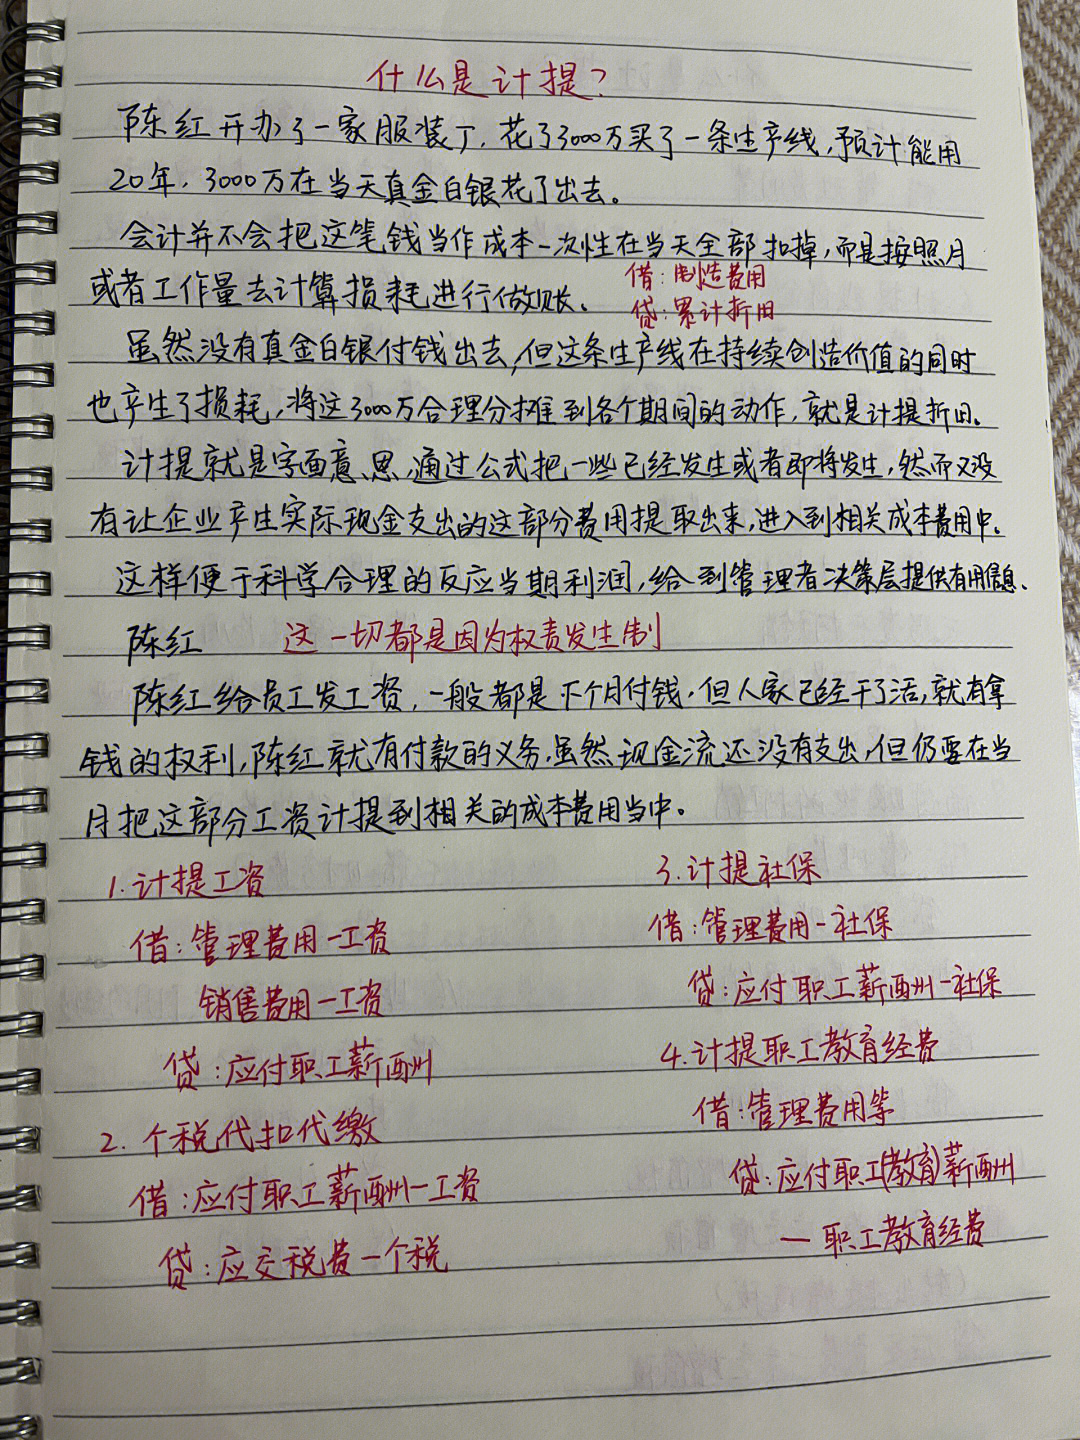 什么是计提?
陈红开办了一家服装厂,花了3000万买了一条生产线,预计能用
20年,3000万在当天真金白银花了出去。
会计并不会把这笔钱当作成本一次性在当天全部扣掉,而是按照月
或者工作量去计算损耗进行做账、
借:制造费用
贷:累计折旧
虽然没有真金白银付钱出去,但这条生产线在持续创造价值的同时
也产生了损耗,将这3000万合理分摊到各个期间的动作,就是计提折旧。
计提就是字面意思,通过公式把一些已经发生或者即将发生,然而又没
有让企业产生实际现金支出的这部分费用提取出来,进入到相关成本费用中。
这样便于科学合理的反应当期利润,给到管理者决策层提供有用信息、
陈红 这一切都是因为权责发生制
陈红给员工发工资,一般都是下个月付钱,但人家已经干了活,就有拿
钱的权利,陈红就有付款的义务,虽然现金流还没有支出,但仍要在当
月把这部分工资计提到相关的成本费用当中。
1.计提工资
借:管理费用-工资
销售费用-工资
贷:应付职工薪酬
2.个税代扣代缴
借:应付职工薪酬-工资
贷:应交税费-个税
3.计提社保
借:管理费用-社保
贷:应付职工薪酬-社保
4.计提职工教育经费
借:管理费用等
贷:应付职工(教育)薪酬
—职工教育经费